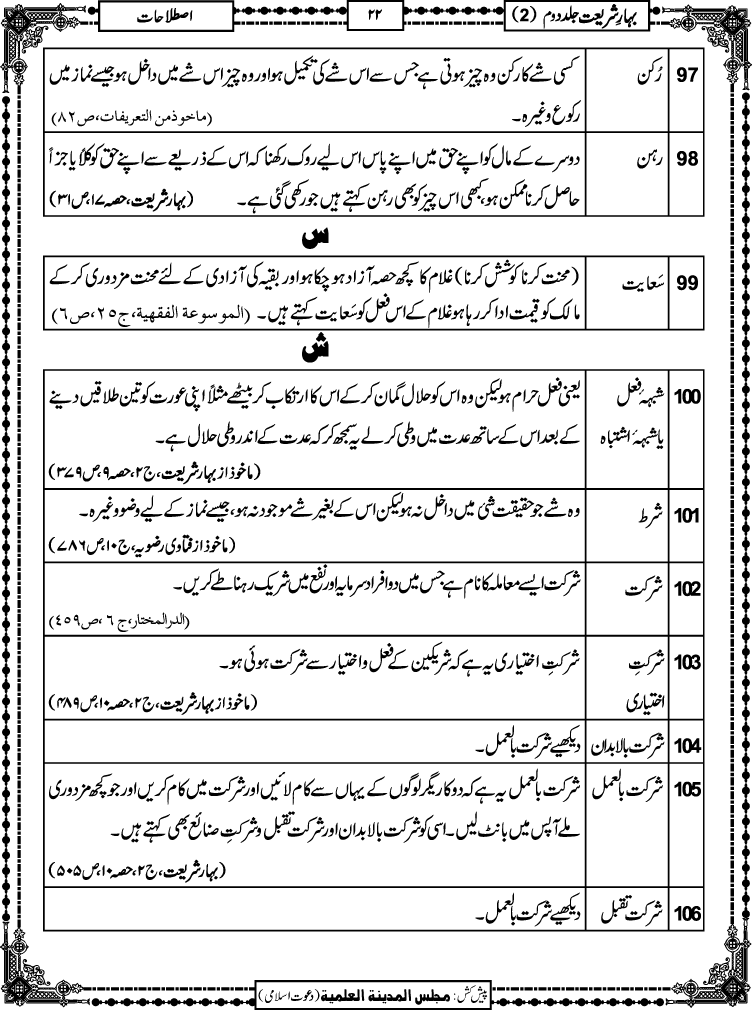 بہارِ شریعت جلد دوم (2)
۲۲
اصطلاحات
97 رُکن کسی شے کا رکن وہ چیز ہوتی ہے جس سے اس شے کی تکمیل ہو اور وہ چیز اس شے میں داخل ہو جیسے نماز میں
رکوع وغیرہ۔ (ماخوذ من التعریفات،ص۸۲)
98 رہن دوسرے کے مال کو اپنے حق میں اپنے پاس اس لیے روک رکھنا کہ اس کے ذریعے سے اپنے حق کو کلًّا یا جزأً
حاصل کرنا ممکن ہو، کبھی اس چیز کو بھی رہن کہتے ہیں جو رکھی گئی ہے۔ (بہار شریعت، حصہ ۱۷،ص۳۱)
س
99 سَعایت (محنت کرنا کوشش کرنا) غلام کا کچھ حصہ آزاد ہو چکا ہو اور بقیہ کی آزادی کے لئے محنت مزدوری کر کے
مالک کو قیمت ادا کر رہا ہو غلام کے اس فعل کو سَعایت کہتے ہیں۔ (الموسوعة الفقهیة،ج۲۵،ص۶)
ش
100 شبہۂ فعل یعنی فعل حرام ہو لیکن وہ اس کو حلال گمان کر کے اس کا ارتکاب کر بیٹھے مثلاً اپنی عورت کو تین طلاقیں دینے
یا شبہۂ اشتباہ کے بعد اس کے ساتھ عدت میں وطی کر لے یہ سمجھ کر کہ عدت کے اندر وطی حلال ہے۔
(ماخوذ از بہار شریعت، ج۲، حصہ ۹،ص۳۷۹)
101 شرط وہ شے جو حقیقت شئ میں داخل نہ ہو لیکن اس کے بغیر شے موجود نہ ہو، جیسے نماز کے لیے وضو وغیرہ۔
(ماخوذ از فتاوی رضویہ، ج۱۰،ص۷۸۶)
102 شرکت شرکت ایسے معاملہ کا نام ہے جس میں دو افراد سرمایہ اور نفع میں شریک رہنا طے کریں۔
(الدرالمختار،ج ۶ ،ص۴۵۹)
103 شرکتِ شرکتِ اختیاری یہ ہے کہ شریکین کے فعل و اختیار سے شرکت ہوئی ہو۔
اختیاری (ماخوذ از بہار شریعت، ج۲، حصہ ۱۰،ص۴۸۹)
104 شرکت بالابدان دیکھیے شرکت بالعمل۔
105 شرکت بالعمل شرکت بالعمل یہ ہے کہ دو کاریگر لوگوں کے یہاں سے کام لائیں اور شرکت میں کام کریں اور جو کچھ مزدوری
ملے آپس میں بانٹ لیں۔ اسی کو شرکت بالابدان اور شرکت تقبل و شرکتِ صنائع بھی کہتے ہیں۔
(بہار شریعت، ج۲، حصہ ۱۰،ص۵۰۵)
106 شرکت تقبل دیکھیے شرکت بالعمل۔
پیش کش: مجلس المدینة العلمیة (دعوت اسلامی)